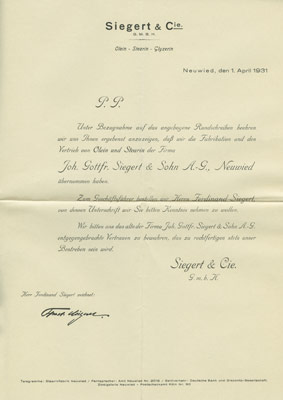 Siegert & Cie.
G. M. B. H.
Olein - Stearin - Glyzerin
Neuwied, den 1. April 1931
P. P.
Unter Bezugnahme auf das umgebogene Rundschreiben beehren
wir uns Ihnen ergebenst anzuzeigen, daß wir die Fabrikation und den
Vertrieb von Olein und Stearin der Firma
Joh. Gottfr. Siegert & Sohn A.-G., Neuwied
übernommen haben.
Zum Geschäftsführer bestellen wir Herrn Ferdinand Siegert,
von dessen Unterschrift wir Sie bitten Kenntnis nehmen zu wollen.
Wir bitten uns das alte der Firma Joh. Gottfr. Siegert & Sohn A. G.
entgegengebrachte Vertrauen zu bewahren, das zu rechtfertigen stets unser
Bestreben sein wird.
Siegert & Cie.
G. m. b. H.
Herr Ferdinand Siegert zeichnet:
Telegramme: Stearinfabrik Neuwied / Fernsprecher: Amt Neuwied Nr. / Bankverkehr: Deutsche Bank und Disconto-Gesellschaft
Zweigstelle Neuwied - Postscheckkonto Köln Nr.